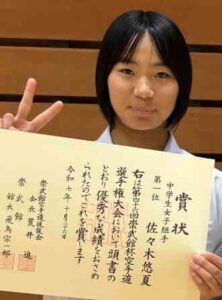 賞状
中学生女子組手
第一位　佐々木悠夏
右は第四十三回崇武館杯空手道
選手権大会において頭書の
とおり優秀な成績をおさめ
られたのでこれを賞します
令和七年十月二十六日
崇武館空手道後援会
会長 荒井 進
崇武館
館長 飛鳥宗一郎